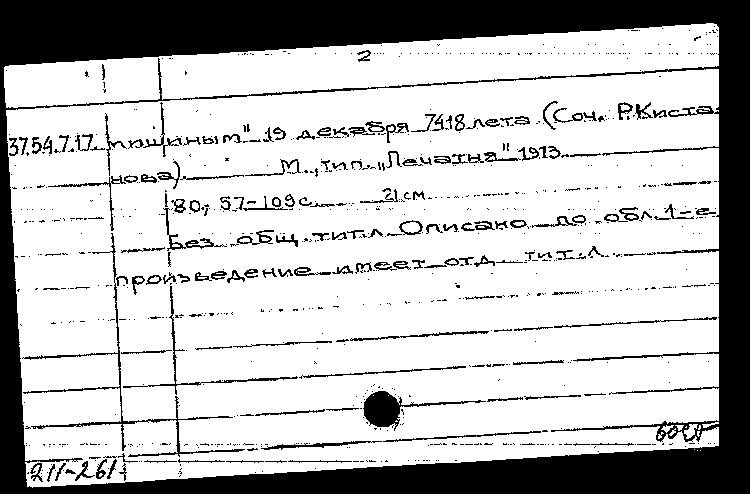 2
37.54.7.17. пишиным" 19 декабря 7418 лета (Соч. Р.Киста-
нова). М., тип. „Печатня" 1913.
80, 57-109 с. 21 см.
Без общ. тит.л. Описано по обл. 1-е
произведение имеет отд. тит. л.
211-261